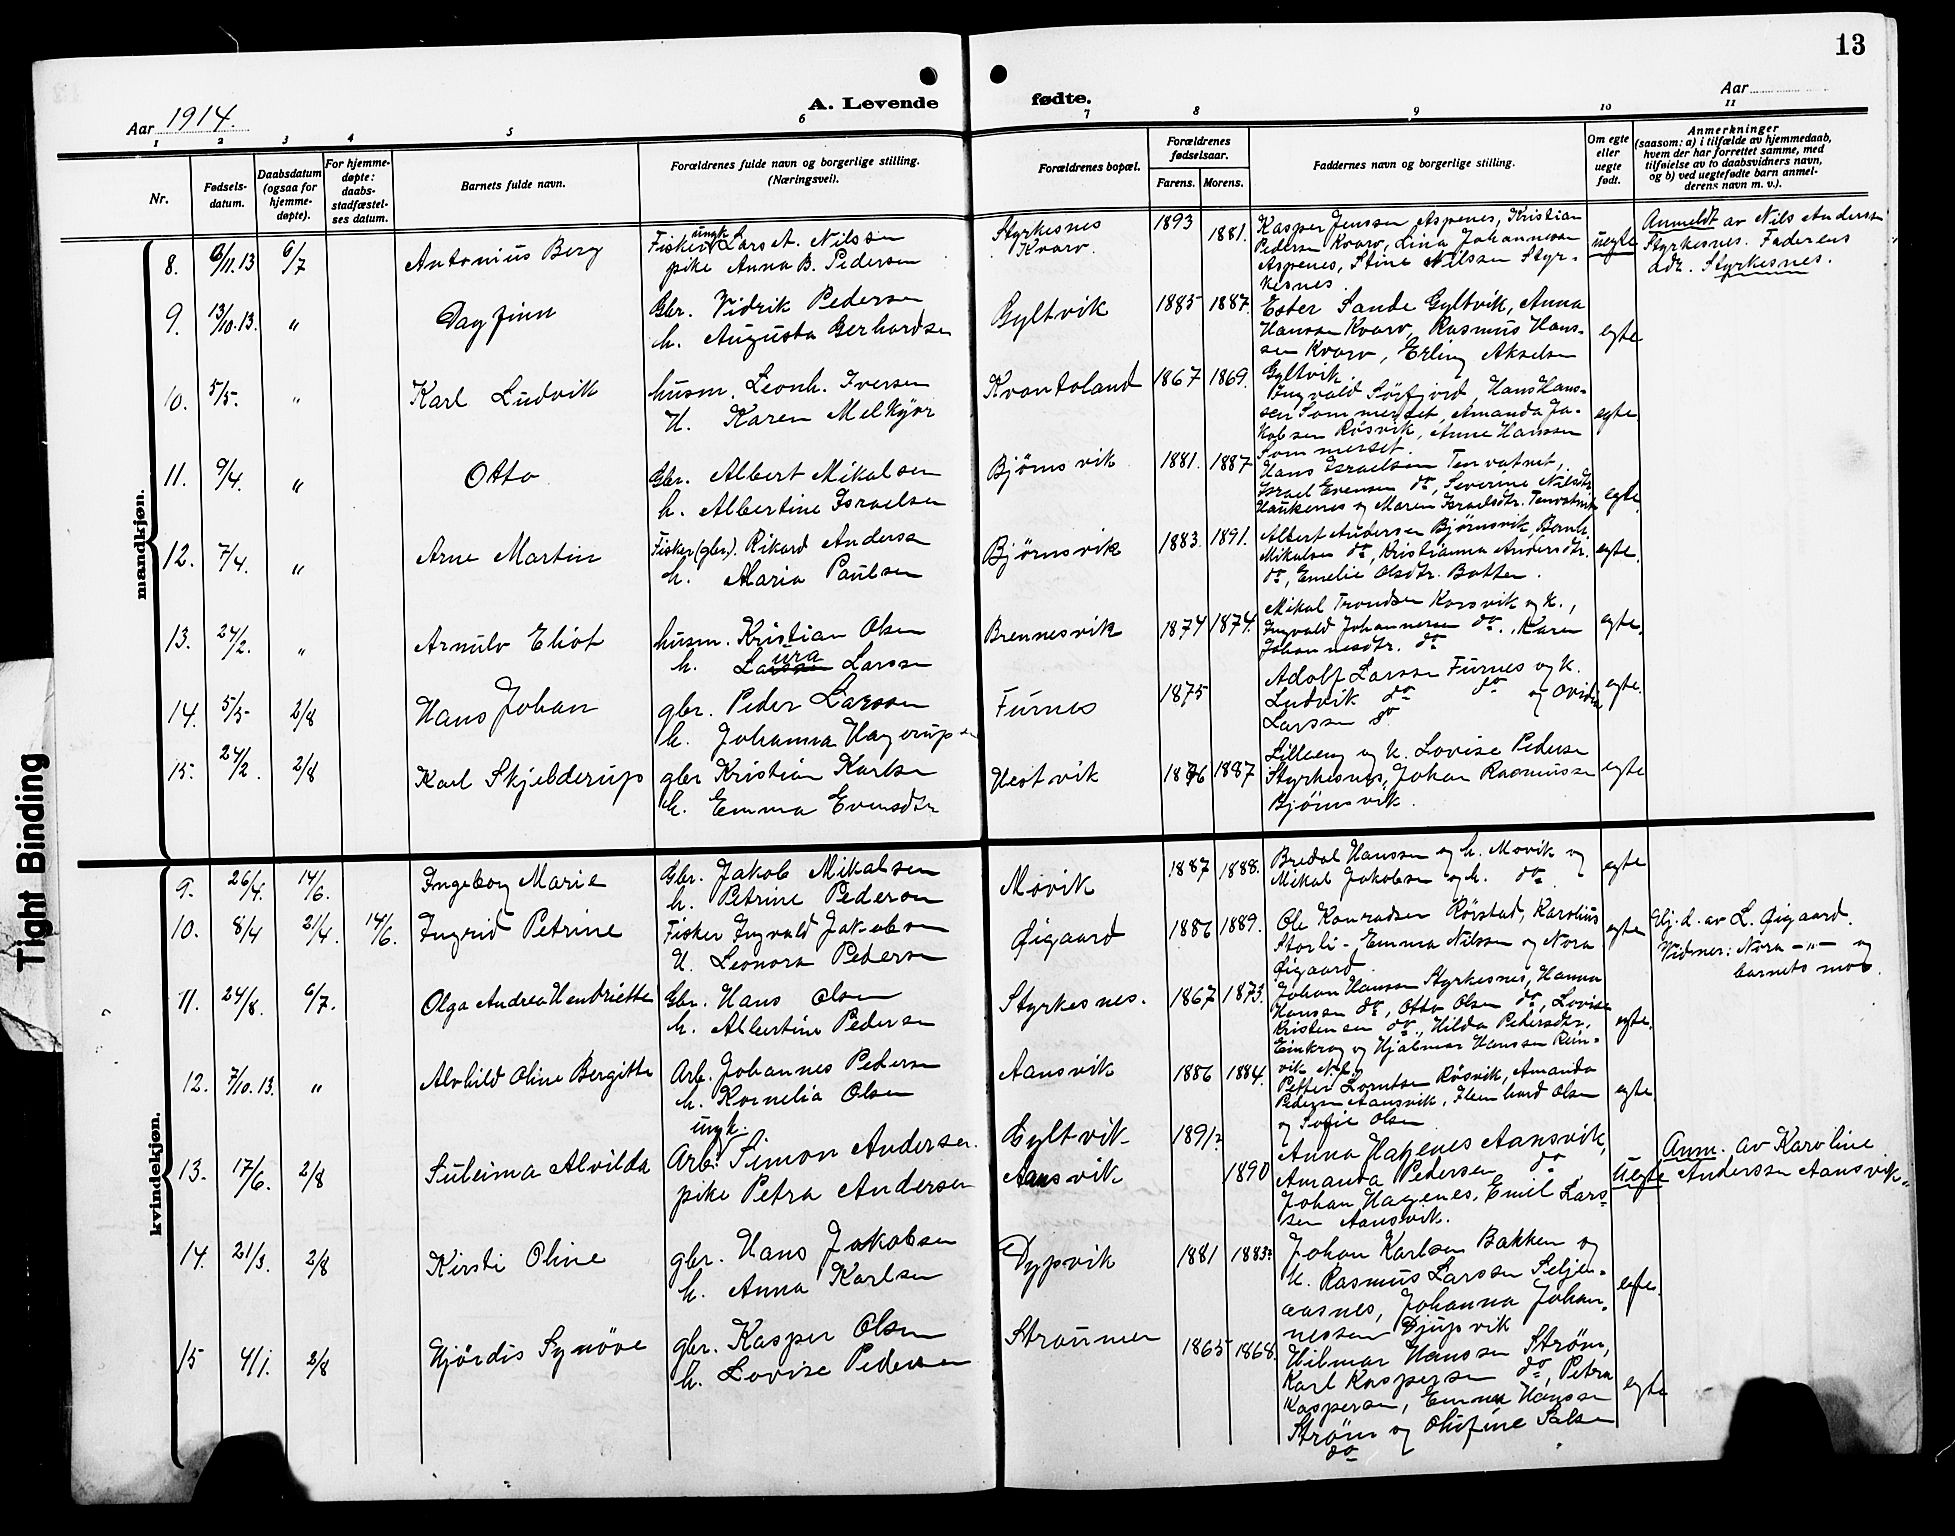 13
Aar 1914.
A. Levende fødte.
Aar
1 2 3 4 5 6 7 8 9 10 11
Nr.
Fødsels-
datum.
Daabsdatum
(ogsaa for
hjemme-
døpte).
For hjemme-
døpte:
daabs-
stadfæstel-
ses datum.
Barnets fulde navn.
Forældrenes fulde navn og borgerlige stilling.
(Næringsvei).
Forældrenes bopæl.
Forældrenes
fødselsaar.
Farens. Morens.
Faddernes navn og borgerlige stilling.
Om egte
eller
uegte
født.
Anmerkninger
(saasom: a) i tilfælde av hjemmedaab,
hvem der har forrettet samme, med
tilføielse av to daabsvidners navn,
og b) ved uegtefødte barn anmel-
derens navn m. v.).
mandkjøn.
8. 6/11.13 6/7 Antonius Berg
ungk.
Fisker Lars A. Nilssen
pike Anna B. Pedersen
Styrkesnes
Kvarv.
1893 1881.
Kasper Jenssen Aspenes, Kristian
Pedersen Kvarv, Lina Johannesen
Aspenes, Stine Nilssen Styr-
kesnes.
uegte
Anmeldt av Nils Anderssen
Styrkesnes. Faderens
adr. Styrkesnes.
9. 13/10.13. " Dagfinn
Gbr. Vidrik Pedersen
h. Augusta Gerhardsen
Gyltvik 1885 1887.
Ester Sande Gyltvik, Anna
Hanssen Kvarv, Rasmus Hans-
sen Kvarv, Erling Akselsen
Gyltvik.
egte
10. 5/5. " Karl Ludvik
husm. Leonh. Iversen
H. Karen Melkjør
Kvantoland 1867 1869.
Ingvald Sörfjord, Hans Hans-
sen Sommerset, Amanda Ja-
kobsen Røsvik, Anne Hanssen
Sommerset.
egte
11. 9/4. " Otto
Gbr. Albert Mikalsen
h. Albertine Israelsen
Bjørnsvik 1881. 1887
Hans Israelsen Tenvatnet,
Israel Evensen do, Severine Nilsdtr
Haukenes og Maren Israelsdtr. Tenvatnet
egte.
12. 7/4. " Arne Martin
Fisker (gbr). Rikard Andersen
h. Maria Paulsen
Bjørnsvik 1883. 1891.
Albert Andersen Bjørnsvik, Bernh.
Mikalsen do, Kristianna Andersdtr.
do, Emelie Olsdtr. Batten.
egte.
13. 24/2. " Arnulv Eliot
husm. Kristian Olsen
h. Laura Larsen
Brennesvik 1874 1874.
Mikal Trondsen Korsvik og h.,
Ingvald Johannesen do., Karen
Johannesdtr. do
egte.
14. 5/5 2/8 Hans Johan
gbr. Peder Larssen
h. Johanna Hagerupsen
Furnes 1875
Adolf Larssen Furnes og h.
Ludvik do do og Ovidia
Larssen do.
egte.
15. 24/2. 2/8 Karl Skjelderup
gbr Kristian Karlsen
h. Emma Evensdtr
Hestvik 1876 1887
Lillaeng og h. Lovise Pedersen
Styrkesnes, Johan Rasmussen
Bjørnsvik.
egte
kvindekjøn.
9. 26/4. 14/6. Ingeborg Marie
Gbr. Jakob Mikalsen
h. Petrine Pedersen
Movik 1887 1888.
Bredal Hanssen og h. Movik og
Mikal Jakobsen og h. do
egte
10. 8/4 21/4. 14/6. Ingrid Petrine
Fisker Ingvald Jakobsen
H. Leonora Pedersen
Øigaard 1886 1889.
Ole Konradsen Rörstad, Karolius
Storli - Emma Nilssen og Nora
Øigaard
egte
Hj. d. av L. Øigaard.
Vidner: Nora -"- og
barnets mor.
11. 24/8. 6/7. Olga Andrea Hendriette
Gbr. Hans Olsen
h. Albertine Pedersen
Styrkesnes. 1867 1873.
Johan Hanssen Styrkesnes, Hanna
Hanssen do, Otto Olsen do, Lovise
Kristensen do, Hilda Pedersdtr.
Einkrog og Hjalmar Hanssen Rein-
vik
egte.
12. 7/10.13. " Alvhild Oline Bergitte
Arb. Johannes Pedersen
h. Kornelia Olsen
Aansvik 1886 1884.
Petter Lorntsen Røsvik, Amanda
Pedersen Aansvik, Olsen
og Sofie Olsen
egte.
13. 17/6. 2/8 Suleima Alvilda
ungk.
Arb. Simon Andersen.
pike Petra Andersen
Gyltvik
Aansvik
1891 1890
Anna Hagenes Aansvik,
Amanda Pedersen do
Johan Hagenes, Emil Lars-
sen Aansvik.
Uegte
Anm. av Karoline
Anderssen Aansvik.
14. 21/3. 2/8 Kirsti Oline
gbr. Hans Jakobsen
h. Anna Karlsen
Dypvik 1881 1883
Johan Karlsen Bakken og
h. Rasmus Larssen Seljen-
aasnes, Johanna Johan-
nessen Djupvik
egte.
15 4/1. 2/8 Hjördis Synöve
gbr. Kasper Olsen
h. Lovise Pedersen
Straumen 1865 1868.
Hilmar Hanssen Strøm,
Karl Kaspersen do, Petra
Kaspersen, Emma Hanssen
Strøm og Olufine
do
egte
Tight Binding